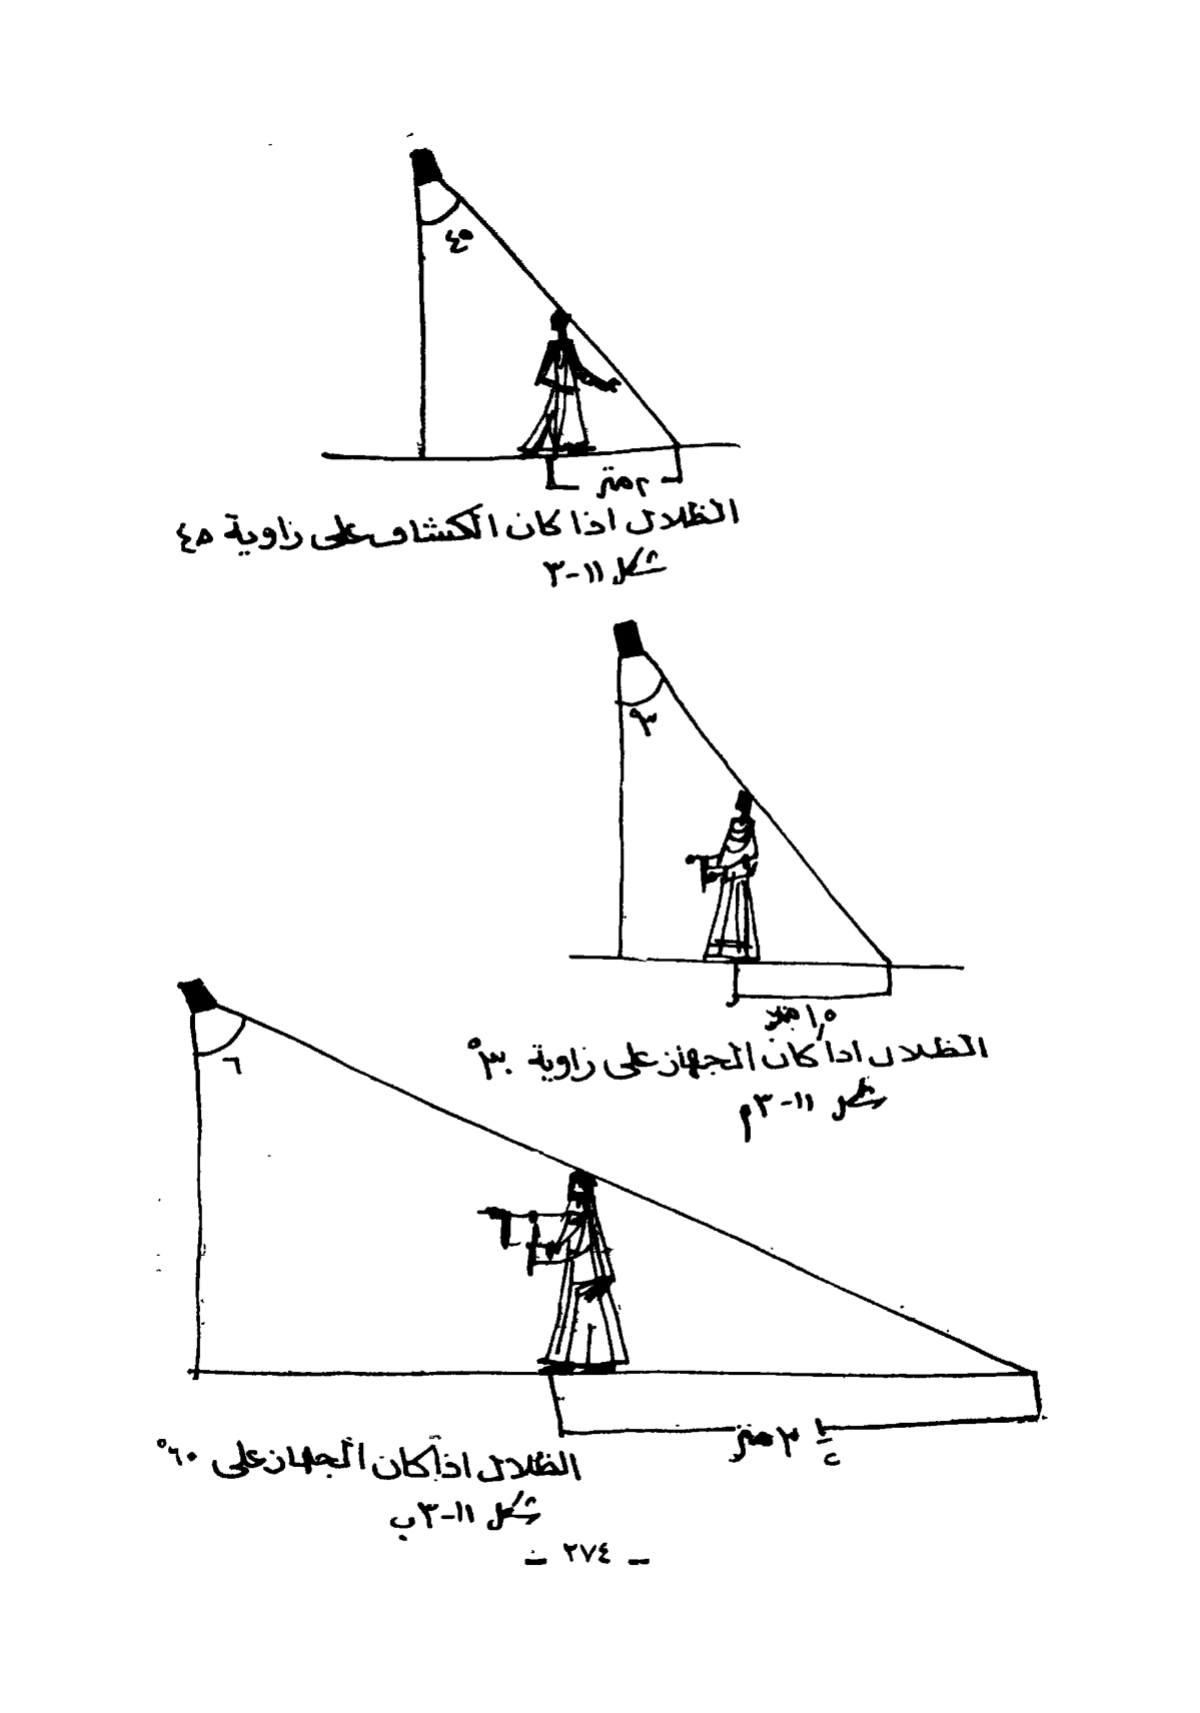 ٤٥
٢ متر
الظلال اذا كان الكشاف على زاوية ٤٥
شكل ١١-٣
٣٠
١,٥ متر
الظلال اذا كان الجهاز على زاوية ٣٠°
شكل ١١-٣م
٦
٣ ١/٢ متر
الظلال اذا كان الجهاز على ٦٠°
شكل ١١-٣ب
- ٢٧٤ -